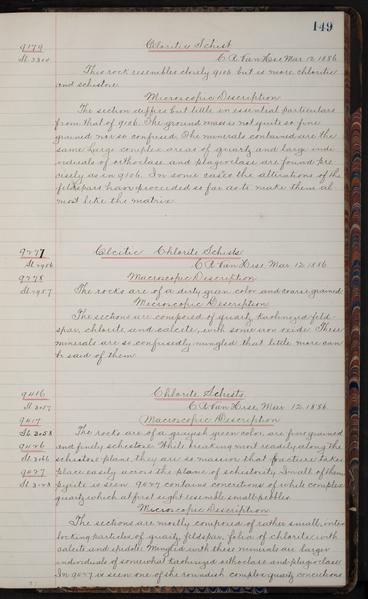 149
9179 Chloritic Schist
Sl. C. R. Van Hise, Mar. 12, 1886.
This rock resembles closely 9106 but is more chloritic
and schistose.
Microscopic Description
The section differs but little in essential particulars
from that of 9106. The ground mass is not quite so fine
grained nor so confused. The minerals contained are the
same. Large complex areas of quartz and large indi-
viduals of orthoclase and plagioclase are found pre-
cisely as in 9106. In some cases the alterations of the
feldspars have proceeded so far as to make them al-
most like the matrix.
9277 Calcitic Chlorite Schists
Sl. 2956 C. R. Van Hise, Mar. 12, 1886.
9278 Macroscopic Description
Sl. 2957 The rocks are of a dirty green color and coarse grained.
Microscopic Description
The sections are composed of quartz, twinned feld-
spar, chlorite and calcite, with some iron oxide. These
minerals are so confusedly mingled that little more can
be said of them.
9416 Chlorite Schists
Sl. 3057 C. R. Van Hise, Mar. 12, 1886.
9417 Macroscopic Description
Sl. 3058 The rocks are of a grayish green color, are fine grained
9426 and finely schistose. While breaking most readily along the
Sl. 3066 schistose plane, they are so massive that fracture takes
9427 place easily across the plane of schistosity. Small of them
Sl. pyrite is seen. 9427 contains concretions of white complex
quartz which at first sight resemble small pebbles.
Microscopic Description
The sections are mostly composed of rather small, inter-
locking particles of quartz, feldspar, folia of chlorite with
calcite and epidote. Mingled with these minerals are larger
individuals of somewhat kaolinized orthoclase and plagioclase.
In 9427 is seen one of the roundish complex quartz concretions